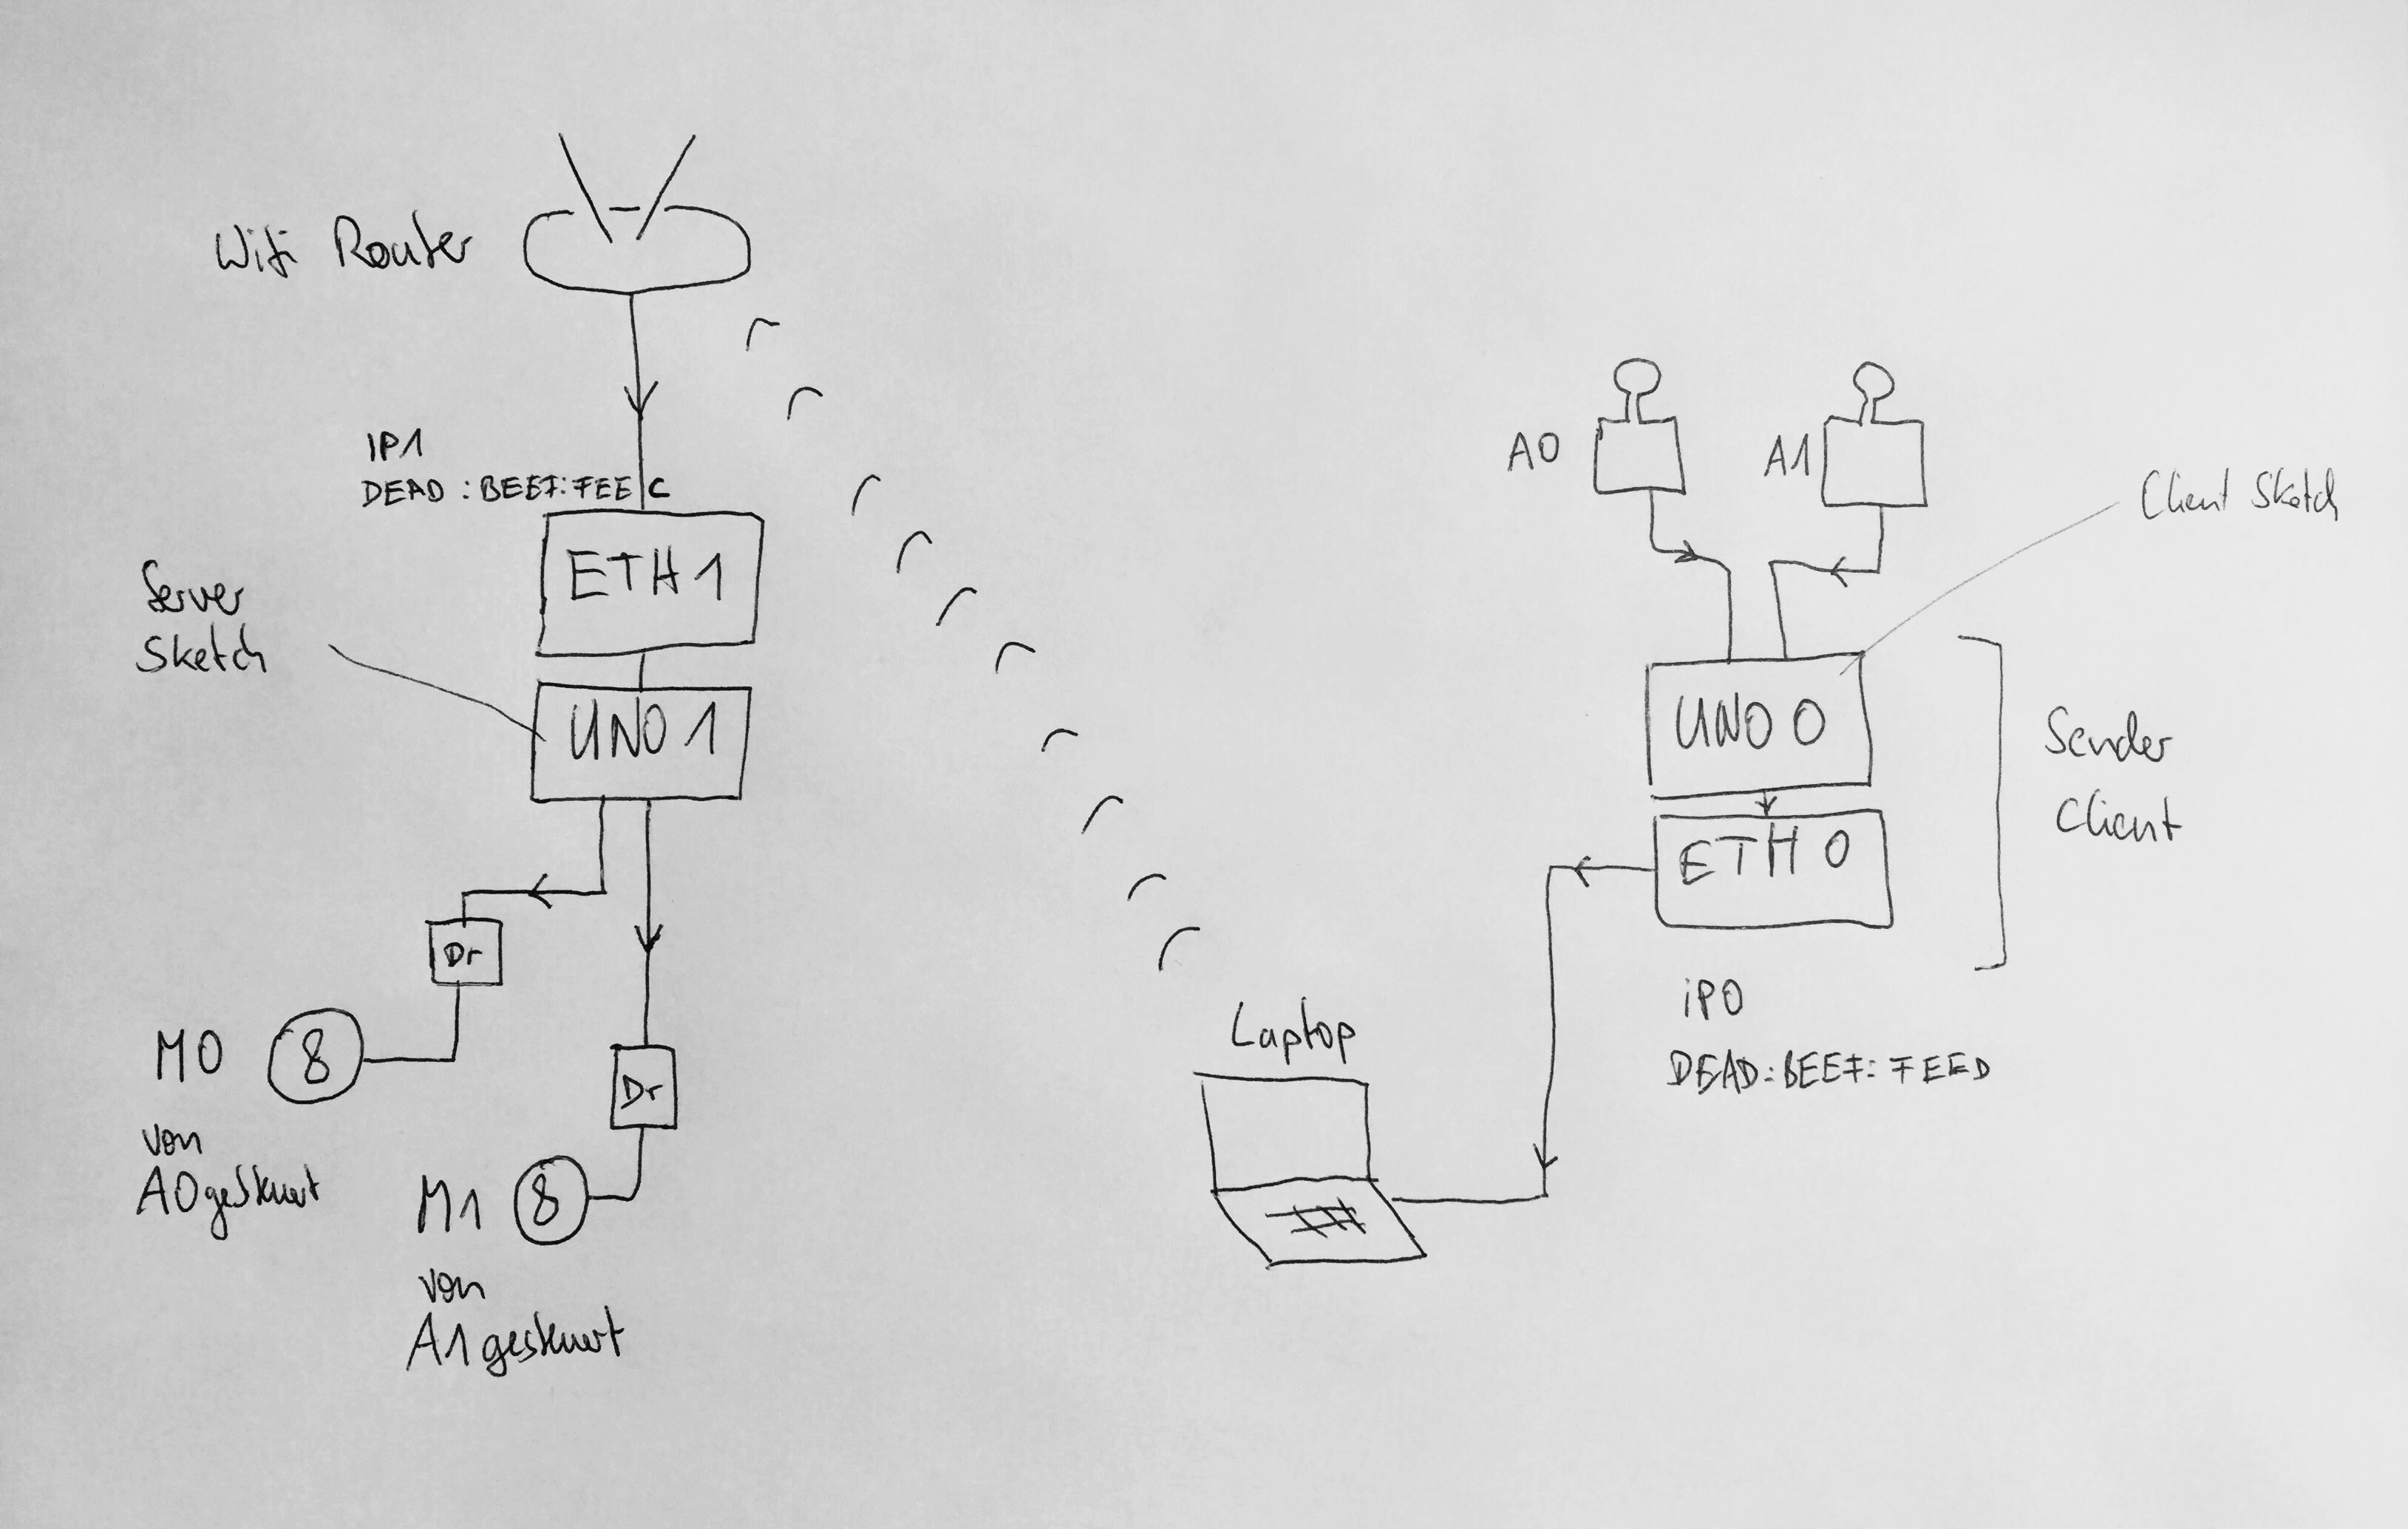 Wifi Router
IP1
DEAD:BEEF:FEEC
ETH1
Server
Sketch
UNO1
Dr
M0
8
von
A0 gesteuert
Dr
M1
8
von
A1 gesteuert
A0
A1
Client Sketch
UNO 0
ETH 0
Sender
Client
iP0
DEAD:BEEF:FEED
Laptop